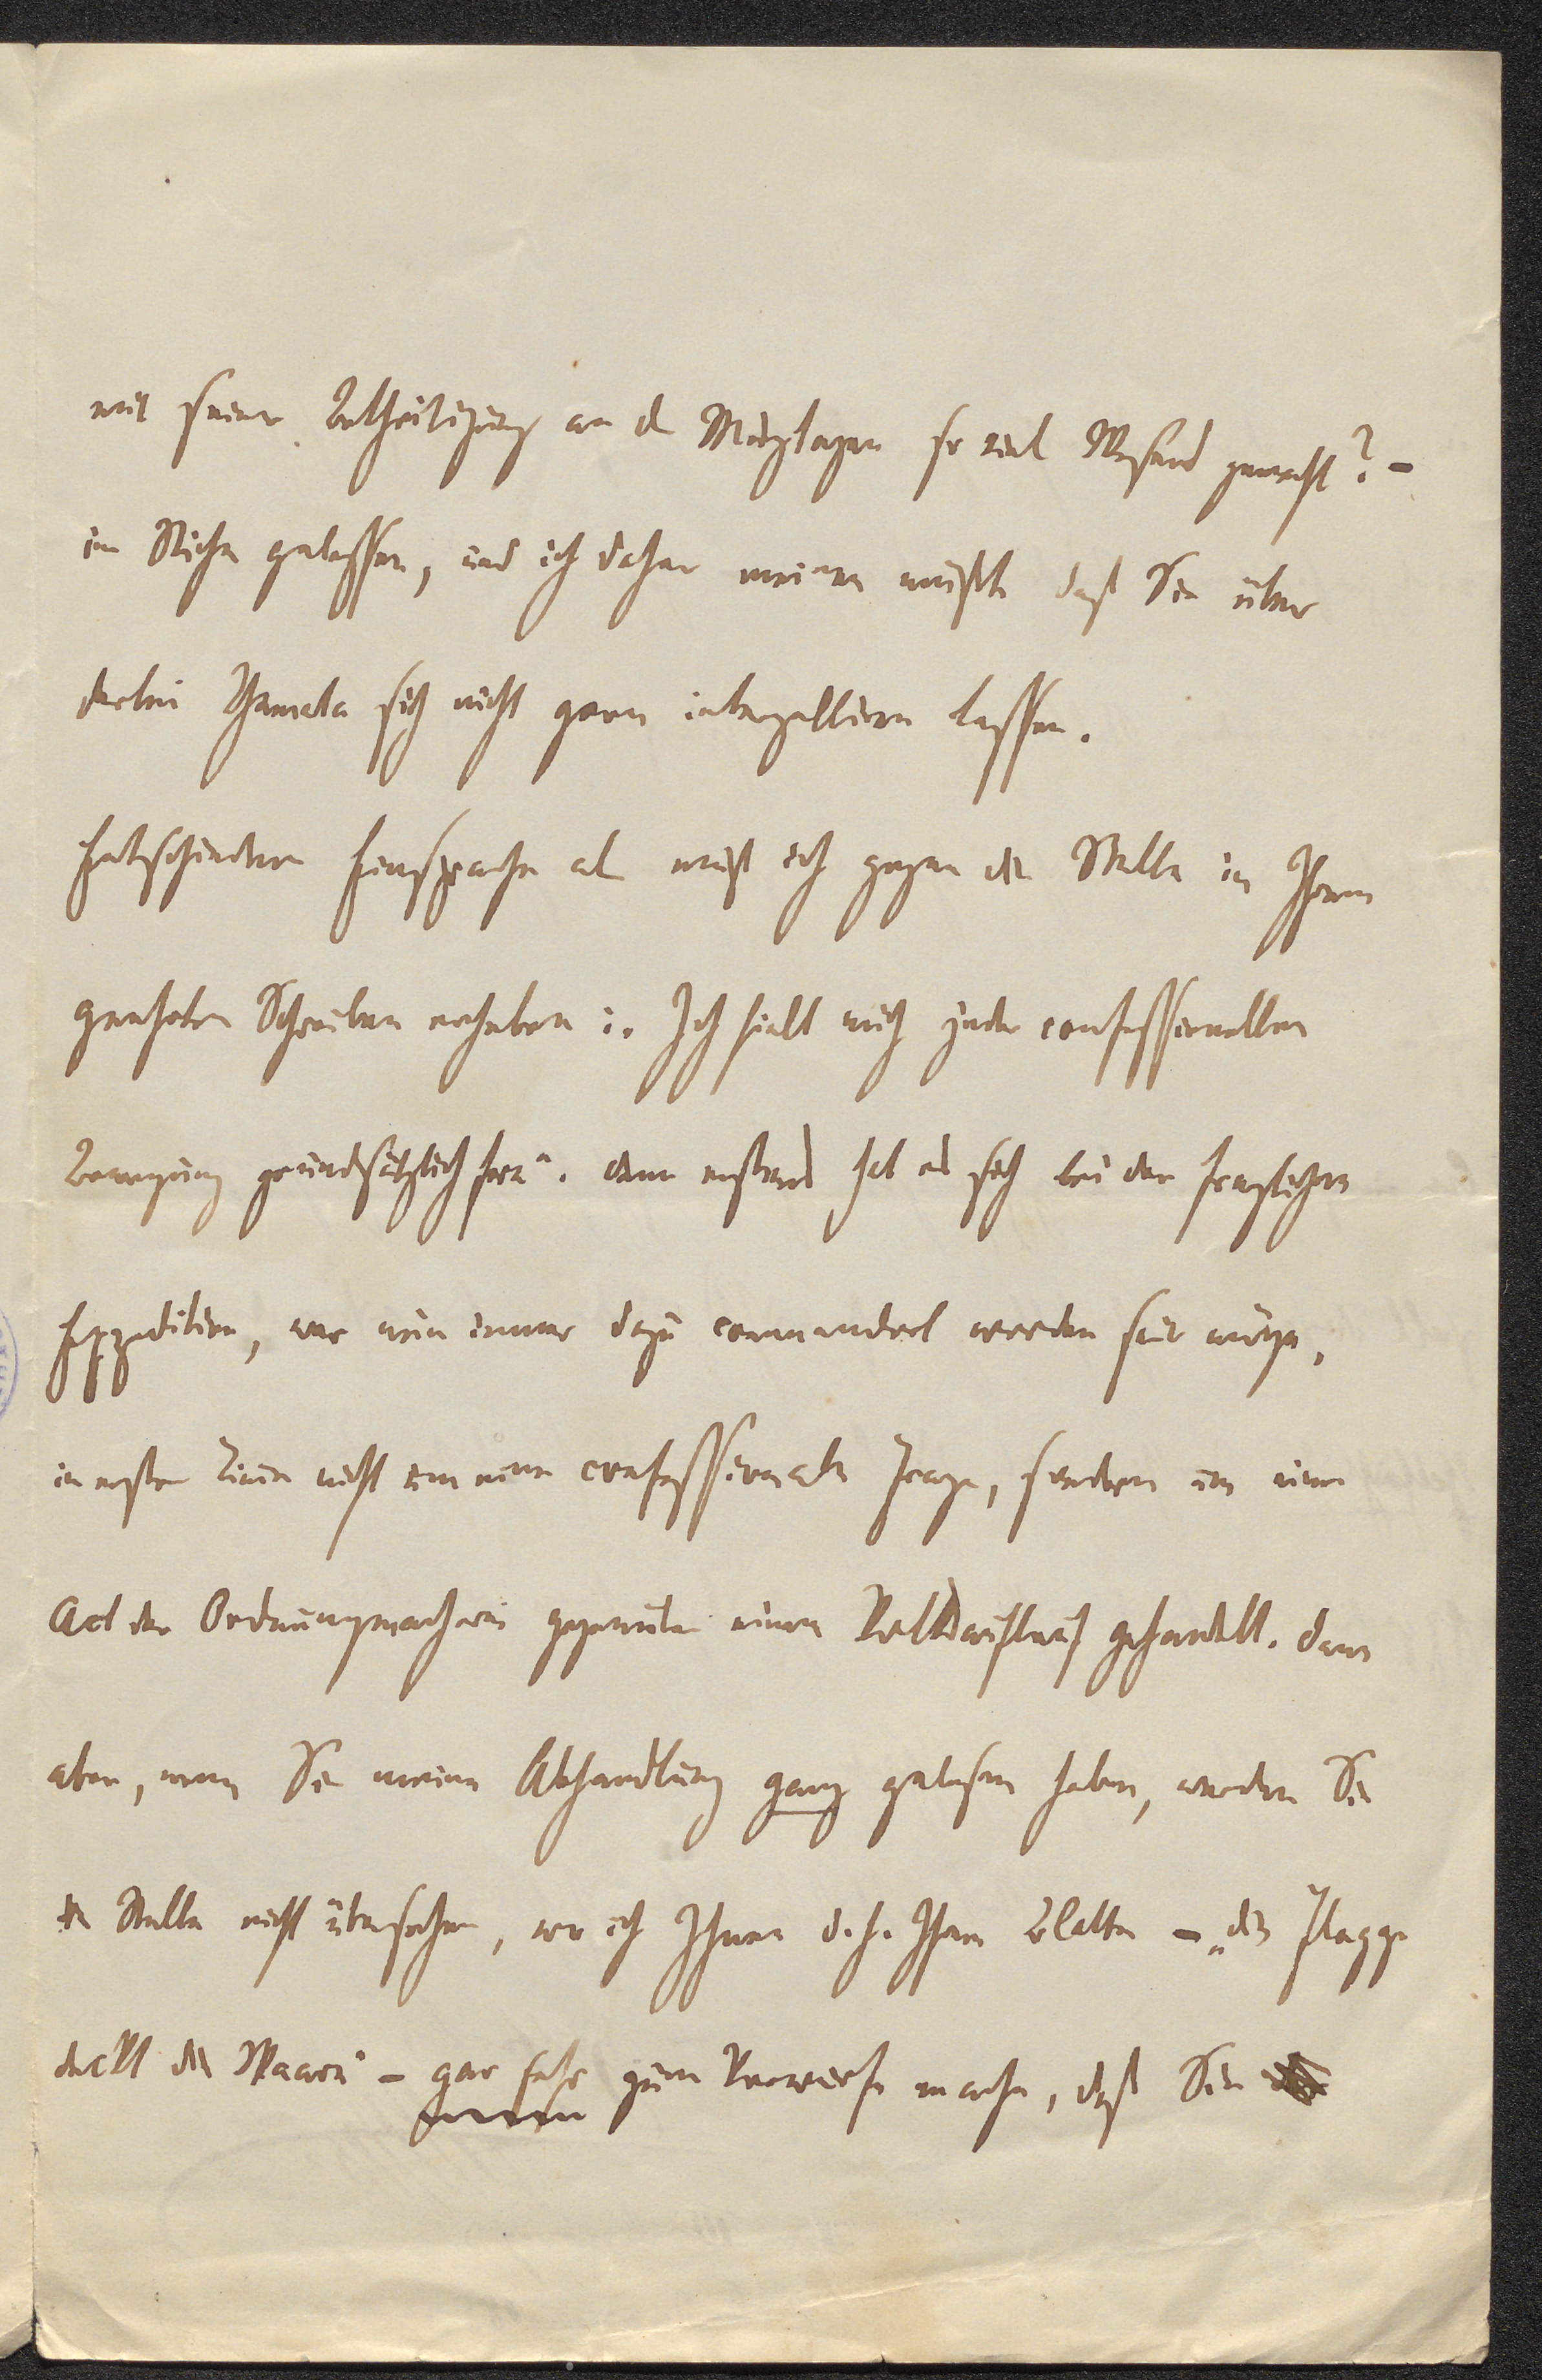 mit seiner Betheiligung an den Märztagen so viel Wesens gemacht? –
im Stiche gelassen, und ich daher meinen mußte daß Sie über
derlei Themata sich nicht gern interpelliren lassen.
Entschiedene Einsprache aber muß ich gegen die Stelle in Ihrem
geehrten Schreiben erheben: „Ich hielt mich jeder confessionellen
Bewegung grundsätzlich fern“. Denn erstens hat es sich bei der fraglichen
Expedition, wer nun immer dazu commandirt worden sein möge,
in erster Linie nicht um eine confessionelle Frage, sondern um einen
Act der Ordnungmacherei gegenüber einem Volksauflauf gehandelt. Dann
aber, wenn Sie meine Abhandlung ganz gelesen haben, werden Sie
die Stelle nicht übersehen, wo ich Ihnen d. h. Ihrem Blatte – „die Flagge
deckt die Waare“ – gar sehr zum Vorwurfe mache, daß Sie